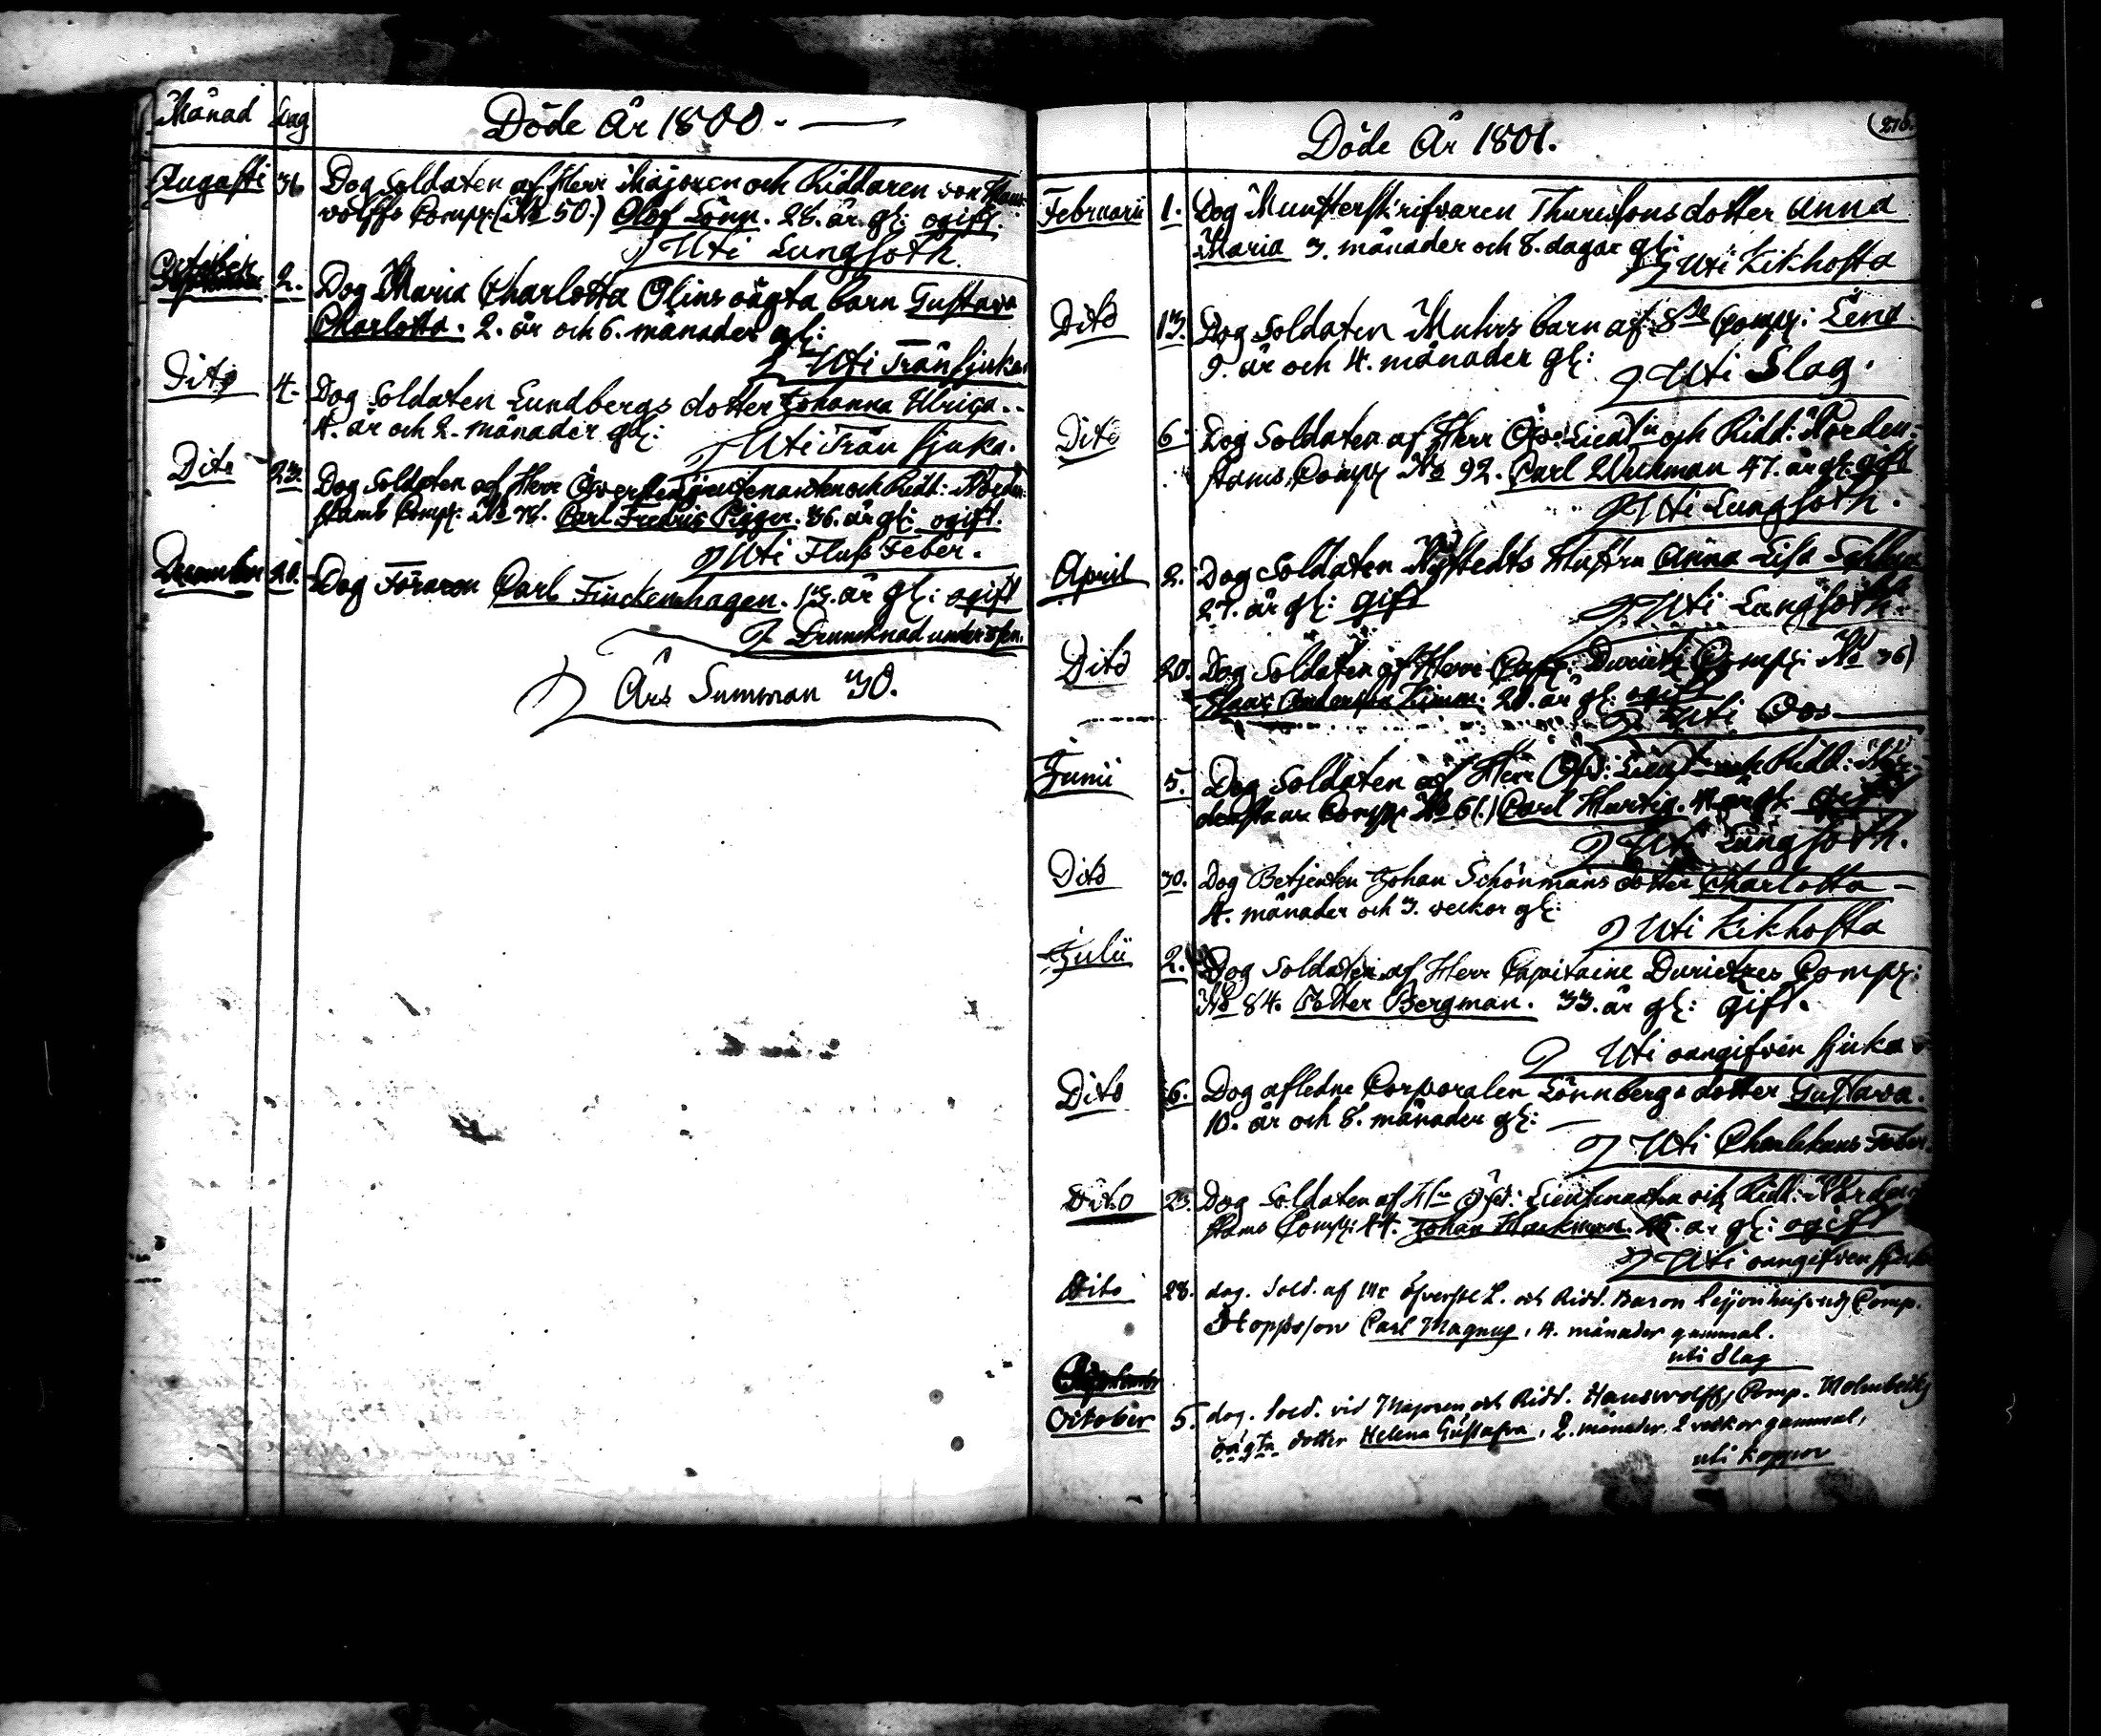 Månad Dag Döde År 1800.
Augusti 31 Dog Soldaten af Herr Majoren och Riddaren von Haus-
wolffs Comp: (No 50.) Olof Lönn. 28. år gl: ogift.
Uti Lungsoth.
October 2. Dog Maria Charlotta Olins oägta barn Gustava
Charlotta. 2. år och 6. månader gl:
Uti Trånsjuka
Dito 4. Dog Soldaten Lundbergs dotter Johanna Ulrica
4. år och 2. månader gl:
Uti Trånsjuka.
Dito 23. Dog Soldaten af Herr Öfverstlieutenanten och Ridd: Norden-
stams Comp: No Carl Fredric Pigger. 36. år gl: ogift.
Uti Fluss Feber.
December 20. Dog Föraren Carl Finckenhagen. år gl: ogift
Drunknad under isen.
Års Summan 30.
Döde År 1801.
Februarii 1. Dog Munsterskrifvaren Thuresons dotter Anna
Maria 3. månader och 8. dagar gl:
Uti Kikhosta
Dito 13. Dog Soldaten Muhrs barn af 8de Comp: Lena
9. år och 4. månader gl:
Uti Slag.
Dito 6. Dog Soldaten af Herr Öfv: Lieut: och Ridd: Norden-
stams Comp: No 92. Carl Wickman 47. år gl: gift
Uti Lungsoth.
April 2. Dog Soldaten Nystedts Hustru Anna Lisa
27. år gl: gift
Uti Lungsoth.
Dito 20. Dog Soldaten af Herr Capt: Durietz Comp: No 36)
Andersson 20. år gl: ogift
Uti
Junii 5. Dog Soldaten af Herr Öfv: Lieut: och Ridd: Nor-
denstams Comp: No 61.) Carl Hurtig. år gl:
Uti Lungsoth.
Dito 30. Dog Betjenten Johan Schönmans dotter Charlotta
4. månader och 3. veckor gl:
Uti Kikhosta
Julii 2. Dog Soldaten af Herr Capitaine Durietzes Comp:
No 84. Petter Bergman. 33. år gl: gift.
Uti oangifven sjuka
Dito 6. Dog afledne Corporalen Lönnbergs dotter Gustava.
10. år och 8. månader gl:
Uti Feber.
Dito 23. Dog Soldaten af Öfv: Lieutenanten och Ridd: Norden-
stams Comp: 44. Johan år gl: ogift
Uti oangifven sjuka
Dito 28. dog. Sold. af Hr Öfverste L. och Ridd. Baron Leijonhufvuds Comp.
Hopps son Carl Magnus, 4. månader gammal.
uti Slag
October 5. dog. Sold. vid Majoren och Ridd. Hauswolffs Comp. Malmbergs
oägta dotter Helena Gustafva, 2. månader 2 veckor gammal,
uti koppor